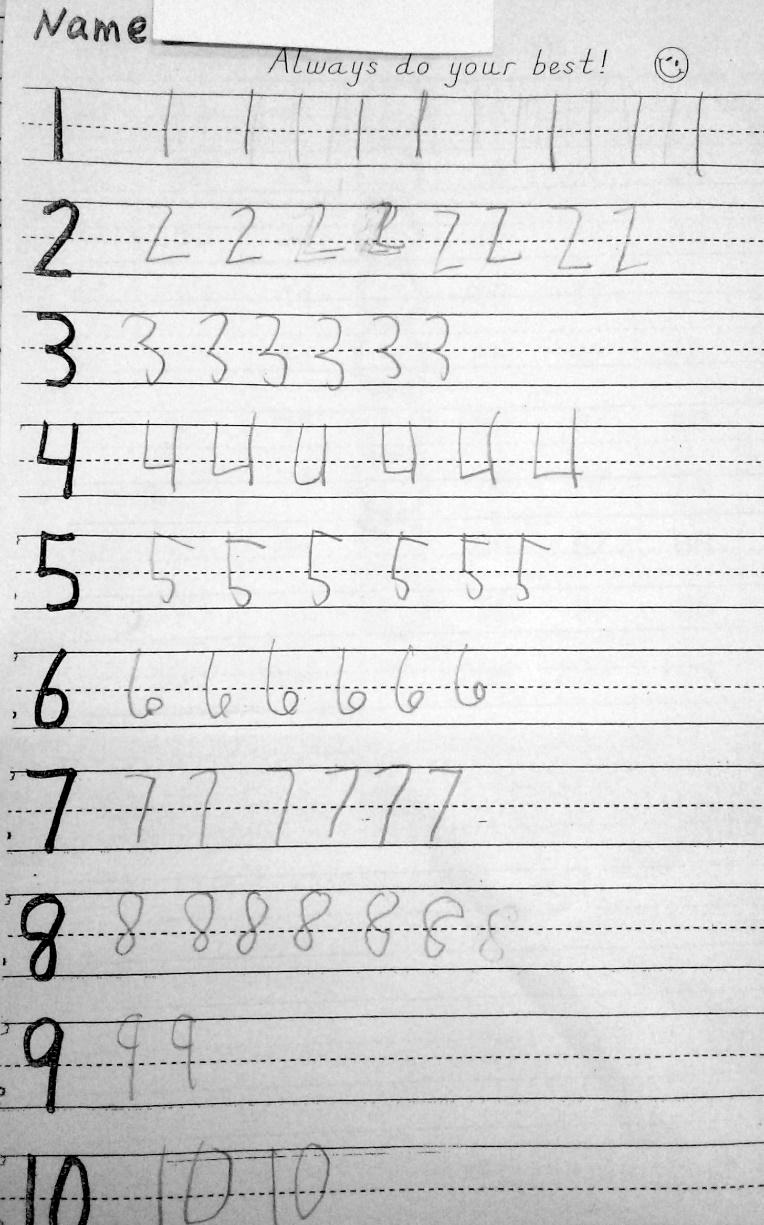 Name
Always do your best!
1 1 1 1 1 1 1 1 1 1 1 1 1 1 1
2 2 2 2 2 2 2 2 2
3 3 3 3 3 3 3
4 4 4 4 4 4 4
5 5 5 5 5 5 5
6 6 6 6 6 6 6
7 7 7 7 7 7 7
8 8 8 8 8 8 8 8
9 9 9
10 10 10